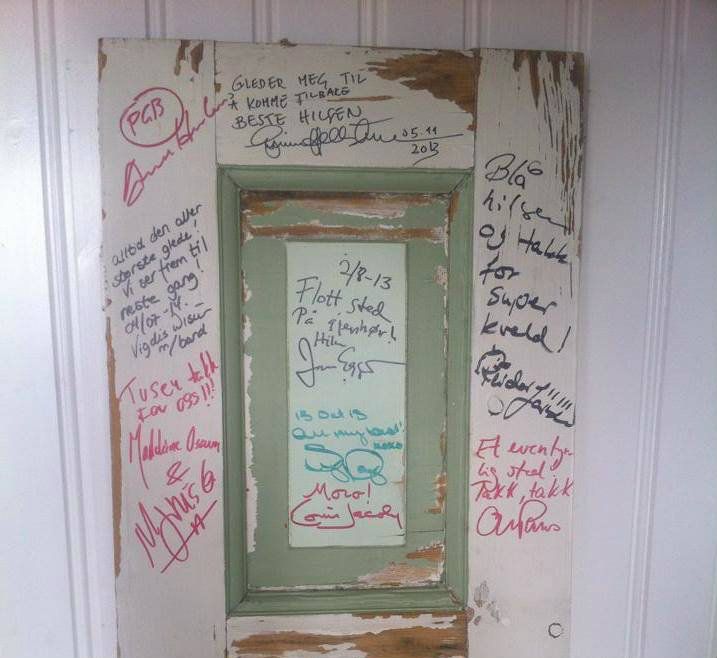 PGB
GLEDER MEG TIL
Å KOMME TILBAKE
BESTE HILSEN
05.11
2013
alltid den aller
største glede,
Vi ser frem til
neste gang!
04/07-14.
Vigdis Wisur
m/band
Tusen takk
for oss!!!
Madeleine Ossum
&
2/8-13
Flott sted
På gjenhør!
Hilsen
Jan Eggum
13 Oct 13
All my best!
xoxo
Moro!
Blå
hilsen
og takk
for
super
kveld!
Reidar Larsen
Et eventyr
lig sted!
Takk, takk